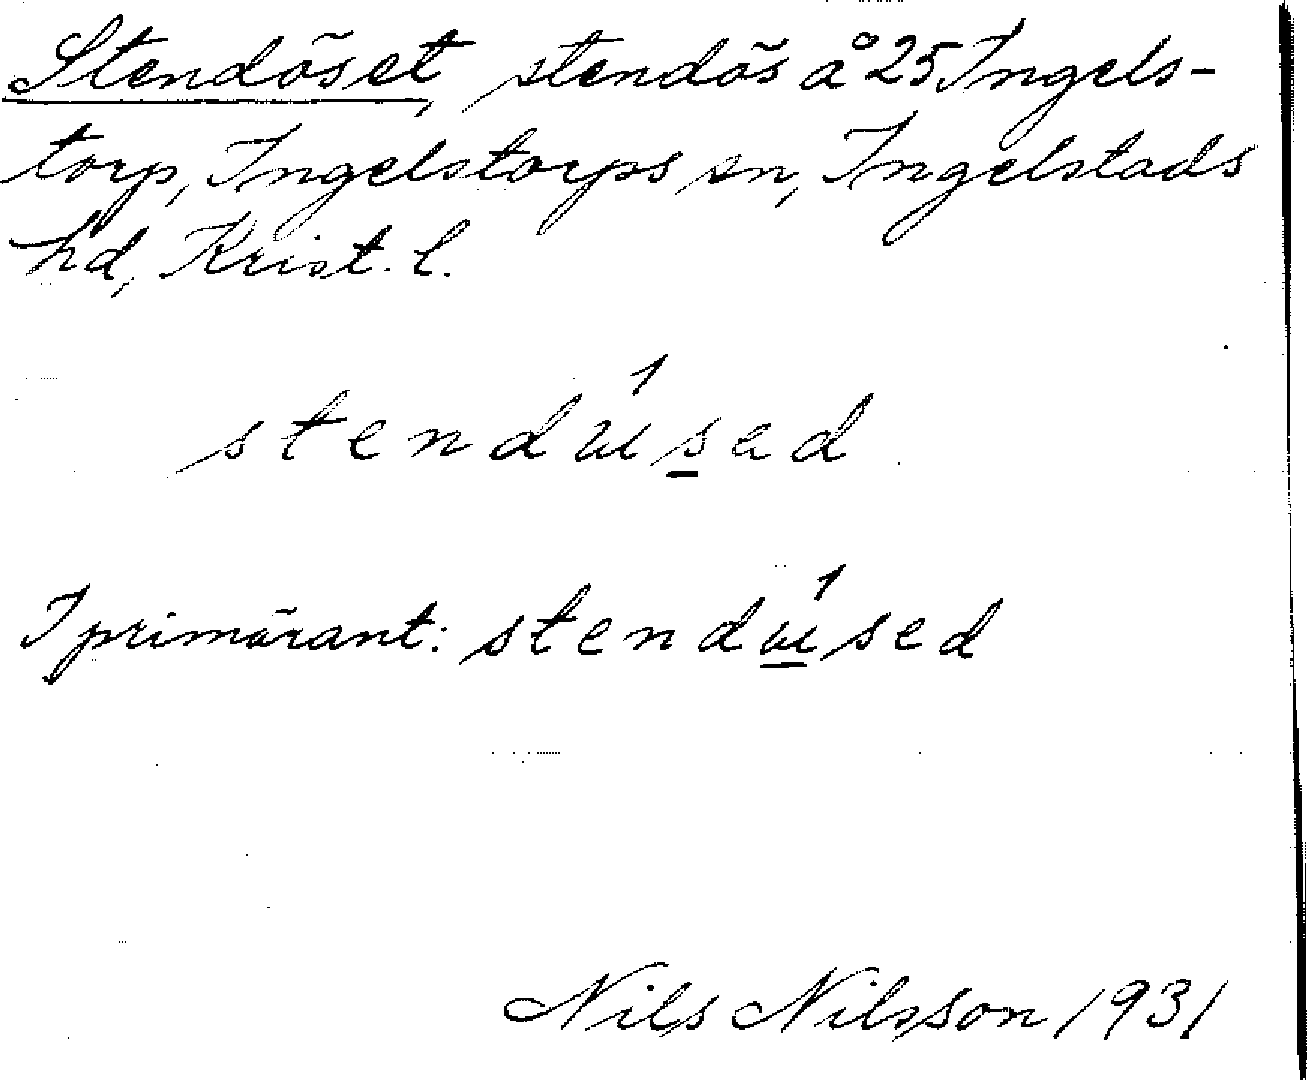 Stendöset, stendös å 25 Ingels-
torp, Ingelstorps sn, Ingelstads
hd, Krist. l.
I primärant:
Nils Nilsson 1931